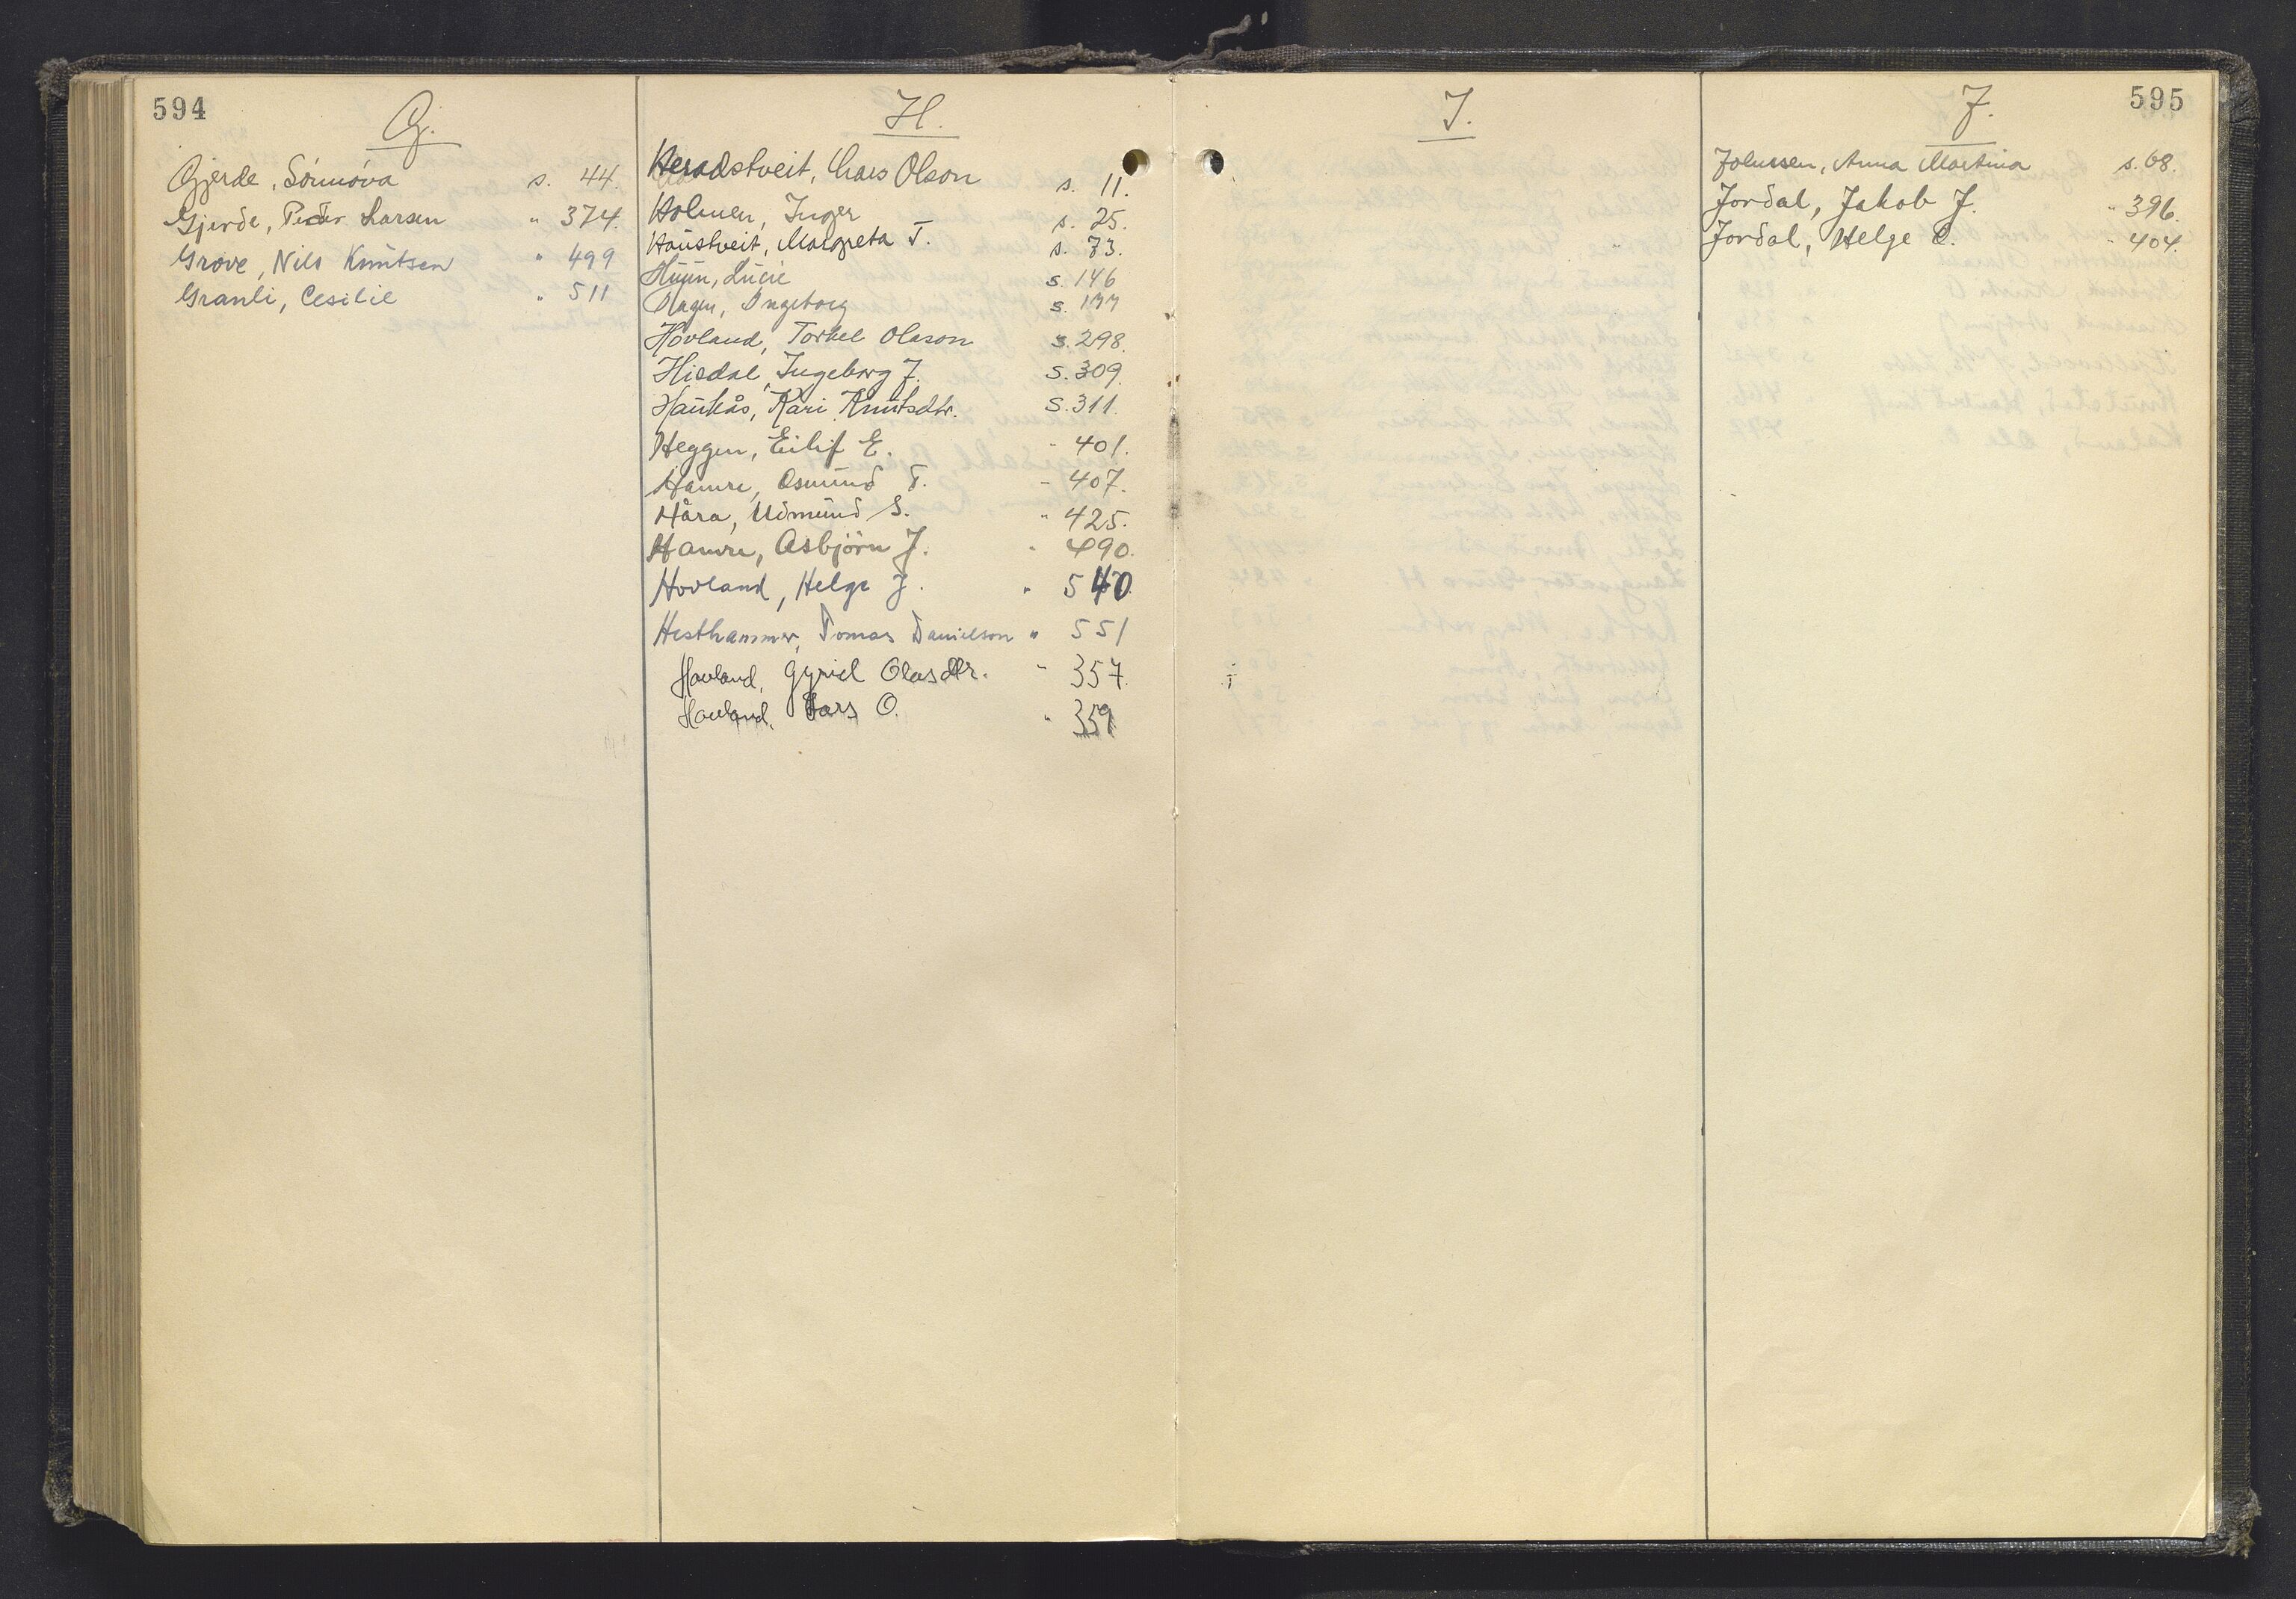 594
G.
Gjerde, Synnöva s. 44.
Gjerde, Peder Larsen " 374.
Grove, Nils Knutsen " 499
Granli, Cesilie " 511
H.
Heradstveit, Lars Olson s. 11.
Holmen, Inger s. 25.
Haustveit, Margreta T. s. 73.
Huun, Lucie s. 146
Hagen, Ingeborg s. 177
Hovland, Torkel Olason s. 298.
Hisdal, Ingeborg J. s. 309.
Haukås, Kari Knutsdtr. s. 311.
Heggen, Eilif E. " 401.
Hamre, Osmund T. " 407.
Håra, Udmund S. " 425.
Hamre, Asbjörn J. " 490.
Hovland, Helge J. " 540
Hesthammer, Tomas Danielson " 551
Havland, Gyrid Olasdtr. " 357.
Havland, Lars O. " 359
I.
595
J.
Johnssen, Anna Martina s. 68.
Jordal, Jakob J. " 396.
Jordal, Helge C. " 404.